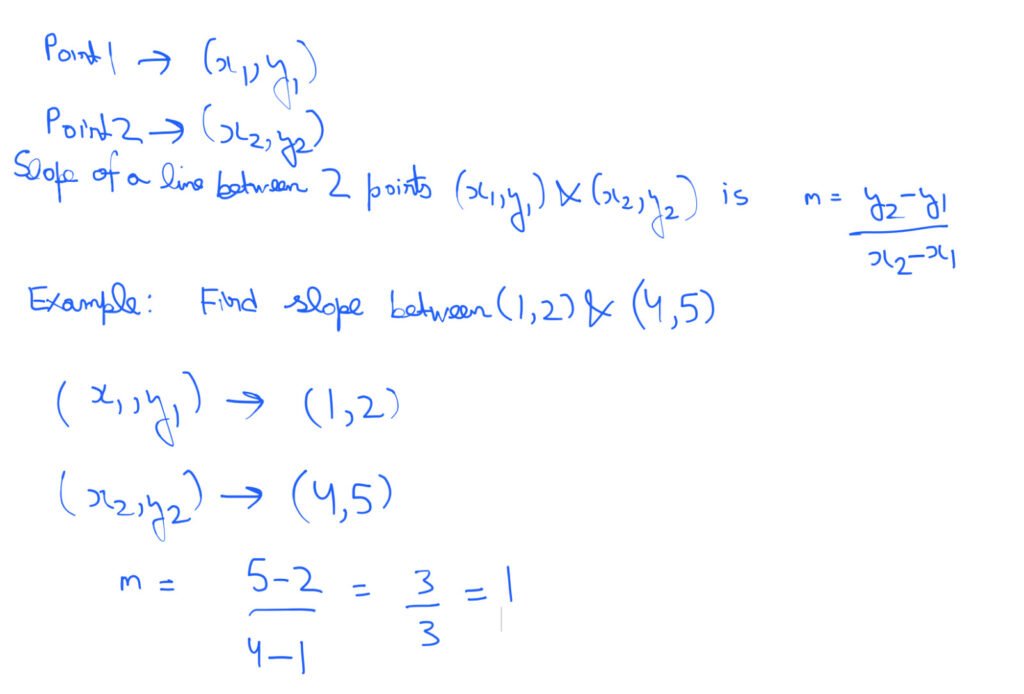 Point 1 → (x₁, y₁)
Point 2 → (x₂, y₂)
Slope of a line between 2 points (x₁, y₁) & (x₂, y₂) is m = (y₂-y₁)/(x₂-x₁)
Example: Find slope between (1,2) & (4,5)
(x₁, y₁) → (1,2)
(x₂, y₂) → (4,5)
m = (5-2)/(4-1) = 3/3 = 1